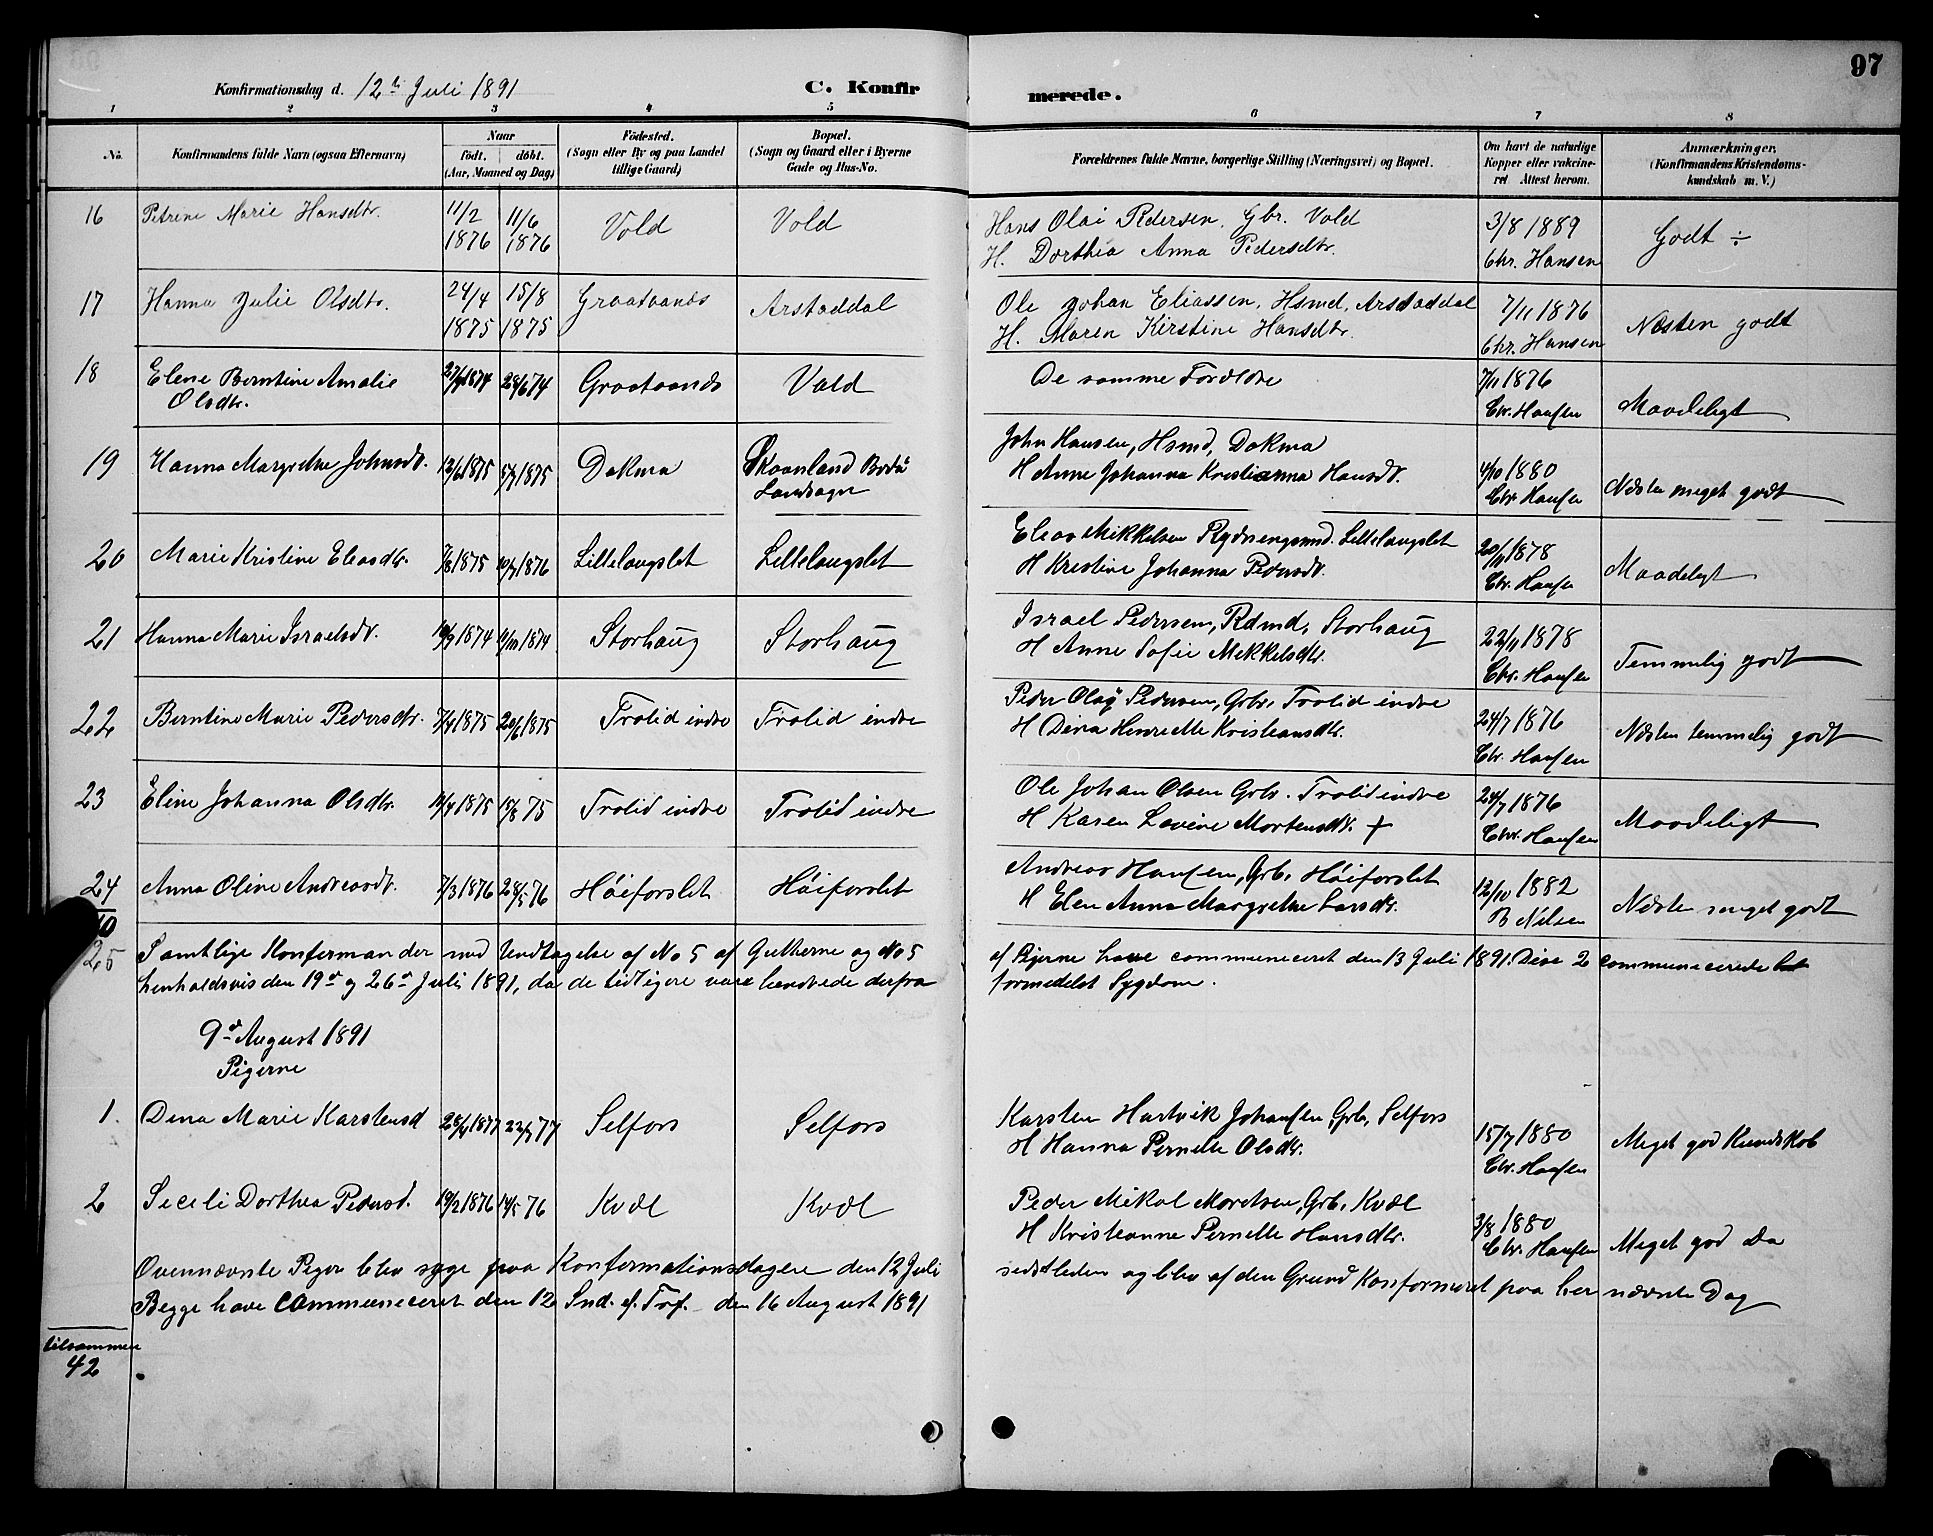 97
Konfirmationsdag d. 12te Juli 1891 C. Konfir merede.
1 2 3 4 5 6 7 8
No. Konfirmandens fulde Navn (ogsaa Efternavn) Naar født. døbt. (Aar, Maaned og Dag) Fødested. (Sogn eller By og paa Landet tillige Gaard) Bopæl. (Sogn og Gaard eller i Byerne Gade og Hus-No. Forældrenes fulde Navne, borgerlige Stilling (Næringsvei) og Bopæl. Om havt de naturlige Kopper eller vakcineret. Attest herom. Anmærkninger. (Konfirmandens Kristendomskundskab m. V.)
16 Petrine Marie Hansdtr. 11/2 1876 11/6 1876 Vold Vold Hans Olai Pedersen, Gbr. Vold 3/8 1889 Godt ÷
H. Dorthea Anna Pedersdtr. Chr. Hansen
17 Hanna Julie Olsdtr. 24/4 1875 15/8 1875 Graataanes Arstaddal Ole Johan Eliassen, Hsmd, Arstaddal 7/11 1876 Næsten godt
H. Maren Kirstine Hansdtr. Chr. Hansen
18 Elene Berntine Amalie 1874 28/6 74 Graataanes Vold De samme Forældre 7/11 1876 Maadeligt
Olsdtr. Chr. Hansen
19 Hanna Margrethe Johnsdt. 1875 1875 Dokma Skaanland Bodø John Hansen, Hsmd, Dokma 4/10 1880
Landsogn H Anne Johanna Kristianna Hansdt. Chr. Hansen Næsten meget godt
20 Marie Kristine Eliasdtr. 7/8 1875 1876 Lillelangslet Lillelangslet Elias Mikkelsen Rydningsmd. Lillelangslet 1878
H Kristine Johanna Pedersdt. Chr. Hansen Maadeligt
21 Hanna Marie Israelsdt. 1874 1874 Storhaug Storhaug Israel Pedersen, Rdmd, Storhaug 22/11 1878
H Anne Sofie Mikkelsdtr. Chr. Hansen Temmelig godt
22 Berntine Marie Pedersdtr. 1875 20/6 1875 Trolid indre Trolid indre Peder Olaj Pedersen, Grbr, Trolid indre 24/7 1876
H Dina Henriette Kristiansdtr. Chr. Hansen Næsten temmelig godt
23 Eline Johanna Olsdtr. 1875 15/8 75 Trolid indre Trolid indre Ole Johan Olsen Grbr. Trolid indre 24/7 1876
H Karen Lovine Mortensdt. † Chr. Hansen Maadeligt
24 Anna Oline Andreasdt. 7/3 1876 28/5 76 Høiforslet Høiforslet Andreas Hansen, Grb. Høiforslet 12/10 1882
H Elen Anna Margrethe Larsdtr. B Nilsen Næsten meget godt
25 Samtlige Konfirmander med Undtagelse af No 5 af Gutterne og No 5 af Pigerne have communiceret den 13 Juli 1891. Disse 2 communicerede
henholdsvis den 19de og 26de Juli 1891, da de tidligere vare hindrede derfra formedelst Sygdom.
9de August 1891
Pigerne
1. Dina Marie Karstensd 1877 22/7 77 Selfors Selfors Karsten Hartvik Johansen, Grb, Selfors 15/7 1880
H Hanna Pernelle Olsdtr. Chr. Hansen Meget god Kundskab
2 Siceli Dorthea Pedersd. 19/2 1876 14/5 76 Kvæl Kvæl Peder Mikal Moretsen, Grb, Kvæl 3/8 1880
H Kristianne Pernelle Hansdtr. Chr. Hansen Meget god Do
Ovennævnte Piger blev syge paa Konfirmationsdagen den 12 Juli sidstleden og blev af den Grund Konfirmeret paa her nævnte Dag
Begge have communiceret den 12 Snd. e. Tref. den 16 August 1891
tilsammen
42